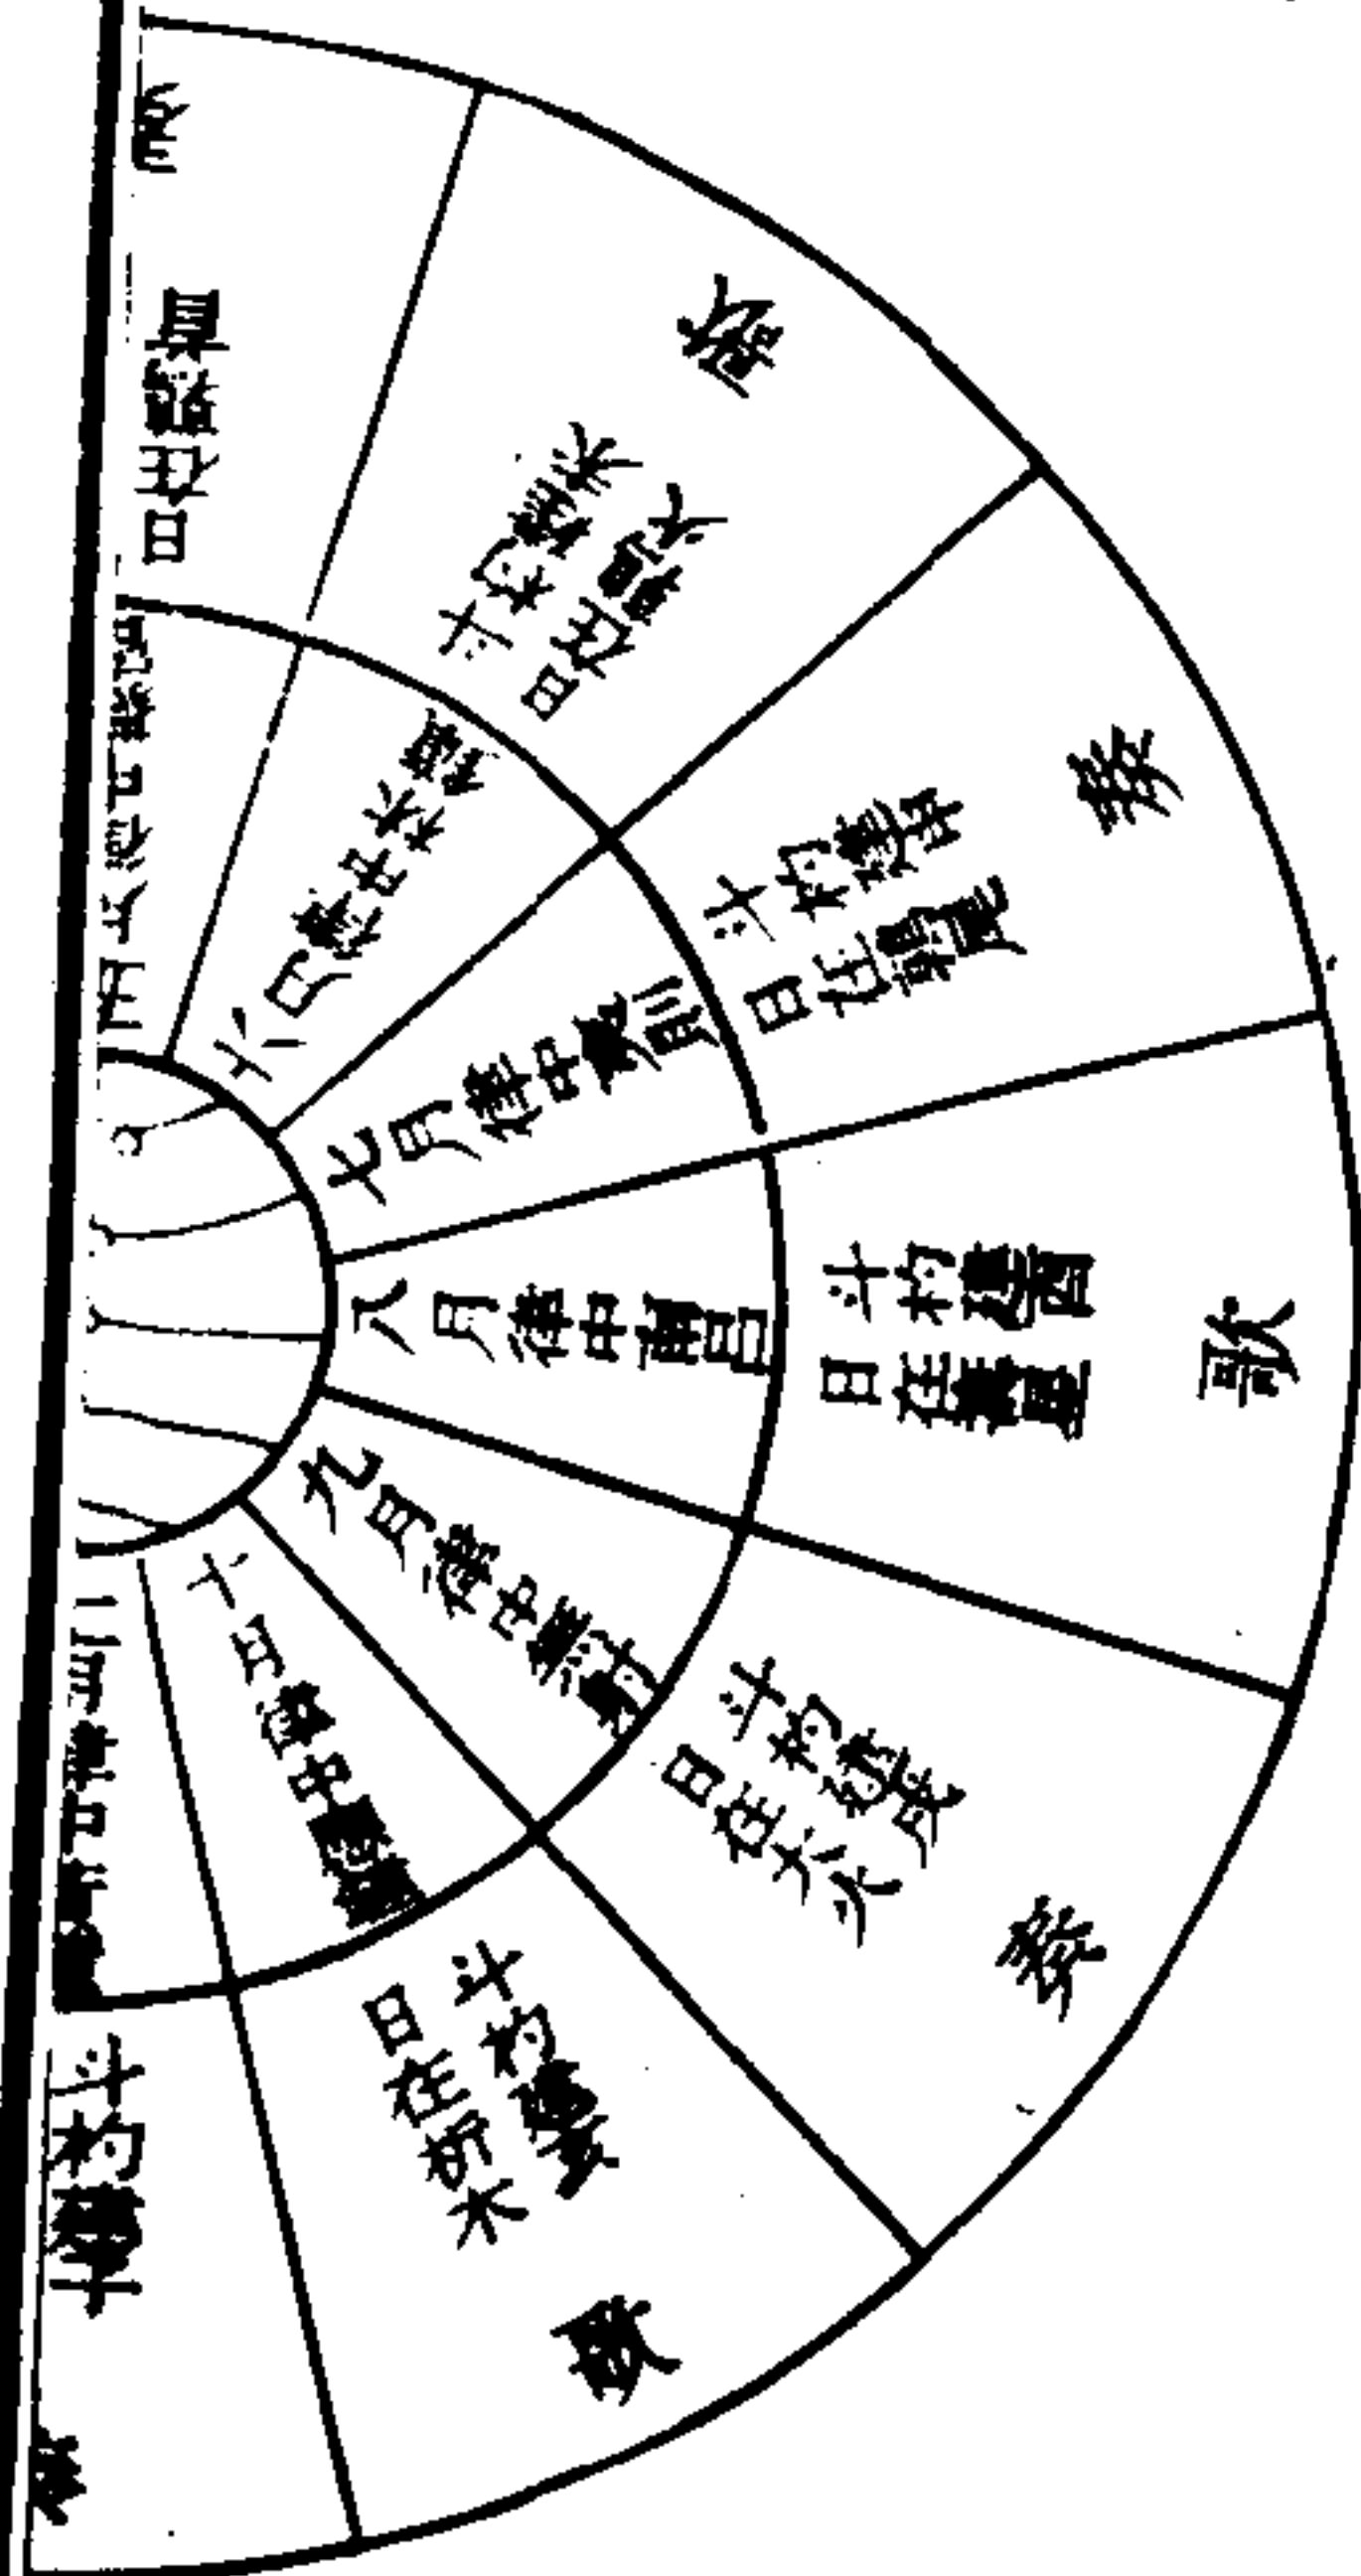 日在鶉首
歌
斗杓建未
日在鶉火
六月律中林鍾
奏
斗杓建申
日在鶉尾
七月律中夷則
歌
斗杓建酉
日在壽星
八月律中南呂
奏
斗杓建戌
日在大火
九月律中無射
歌
斗杓建亥
日在析木
十月律中應鍾
斗杓建子